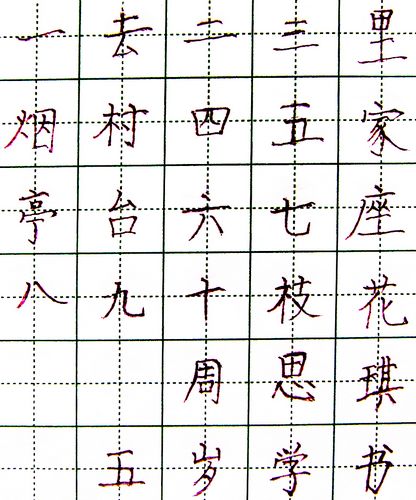 一去二三里
烟村四五家
亭台六七座
八九十枝花
周思琪
五岁学书